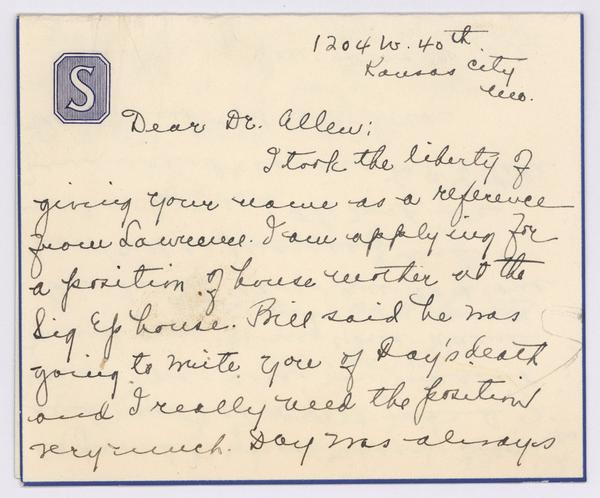 1204 W. 40th.
Kansas City
Mo.
S
Dear Dr. Allen:
I took the liberty of
giving your name as a reference
from Lawrence. I am applying for
a position of house mother at the
Sig Ep house. Bill said he was
going to write you of Day's death
and I really need the position
very much. Day was always